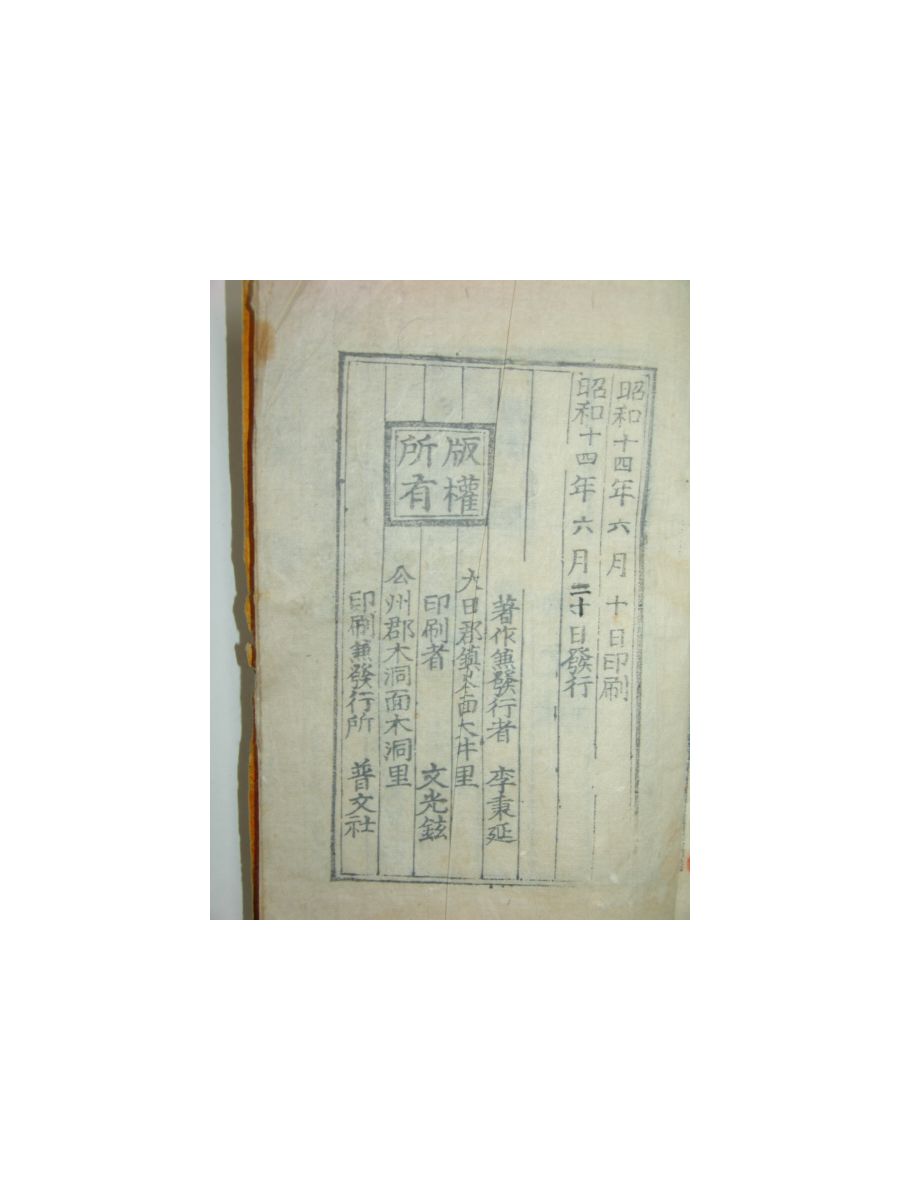 昭和十四年六月十日印刷
昭和十四年六月二十日發行
版權
所有
著作兼發行者 李秉延
大日郡鎭岑面大井里
印刷者 文光鉉
公州郡木洞面木洞里
印刷兼發行所 普文社